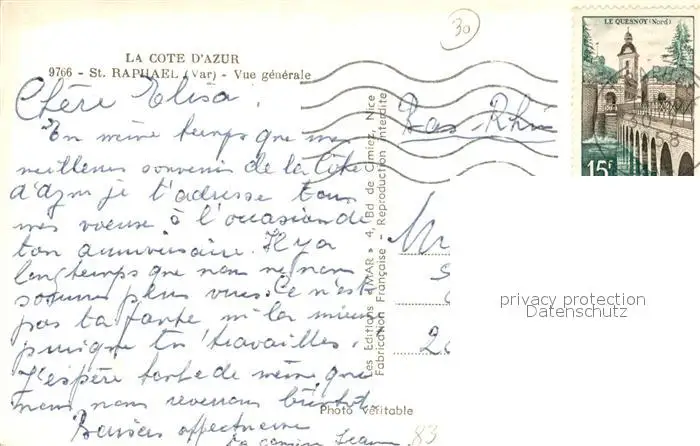 30
LE QUESNOY (Nord)
15F
LA COTE D'AZUR
9766 - St. RAPHAEL (Var) - Vue générale
Chère Elisa,
En même temps que mes
meilleurs souvenirs de la Côte
d'azur je t'adresse tous
mes voeux à l'occasion de
ton anniversaire. Il y a
longtemps que nous ne nous
sommes plus vues. Ce n'est
pas ta faute ni la mienne
puisque tu travailles.
J'espère tout de même que
nous nous reverrons bientôt
Baisers affectueux
ta cousine Jeanne
Les Editions « MAR » 4, Bd de Cimiez, Nice
Fabrication Française - Reproduction Interdite
Bas-Rhin
privacy protection
Datenschutz
Photo véritable
83